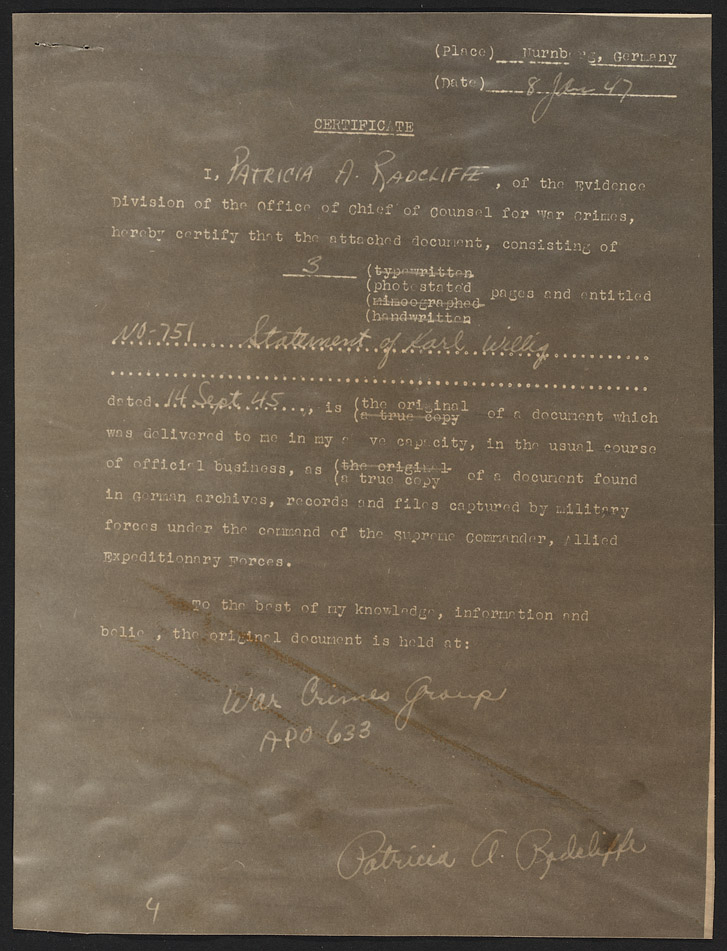 (Place) Nurnberg, Germany
(Date) 8 Jan 47
CERTIFICATE
I, PATRICIA A. RADCLIFFE, of the Evidence
Division of the Office of Chief of Counsel for War Crimes,
hereby certify that the attached document, consisting of
3 (typewritten
(photostated pages and entitled
(mimeographed
(handwritten
NO-751 Statement of Karl Willig
dated 14 Sept. 45, is (the original
(a true copy of a document which
was delivered to me in my a ve capacity, in the usual course
of official business, as (the original
(a true copy of a document found
in German archives, records and files captured by military
forces under the command of the Supreme Commander, Allied
Expeditionary Forces.
To the best of my knowledge, information and
belie , the original document is held at:
War Crimes Group
APO 633
Patricia A. Radcliffe
4